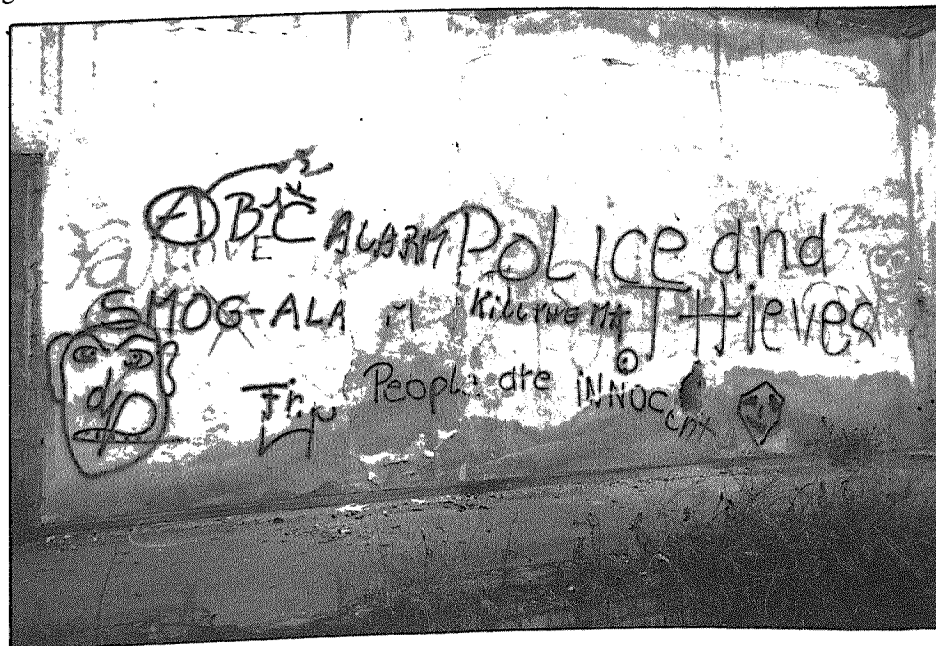 ALARM POLICE and
SMOG-ALA M KILLING MA THieves
People are iNNOCent